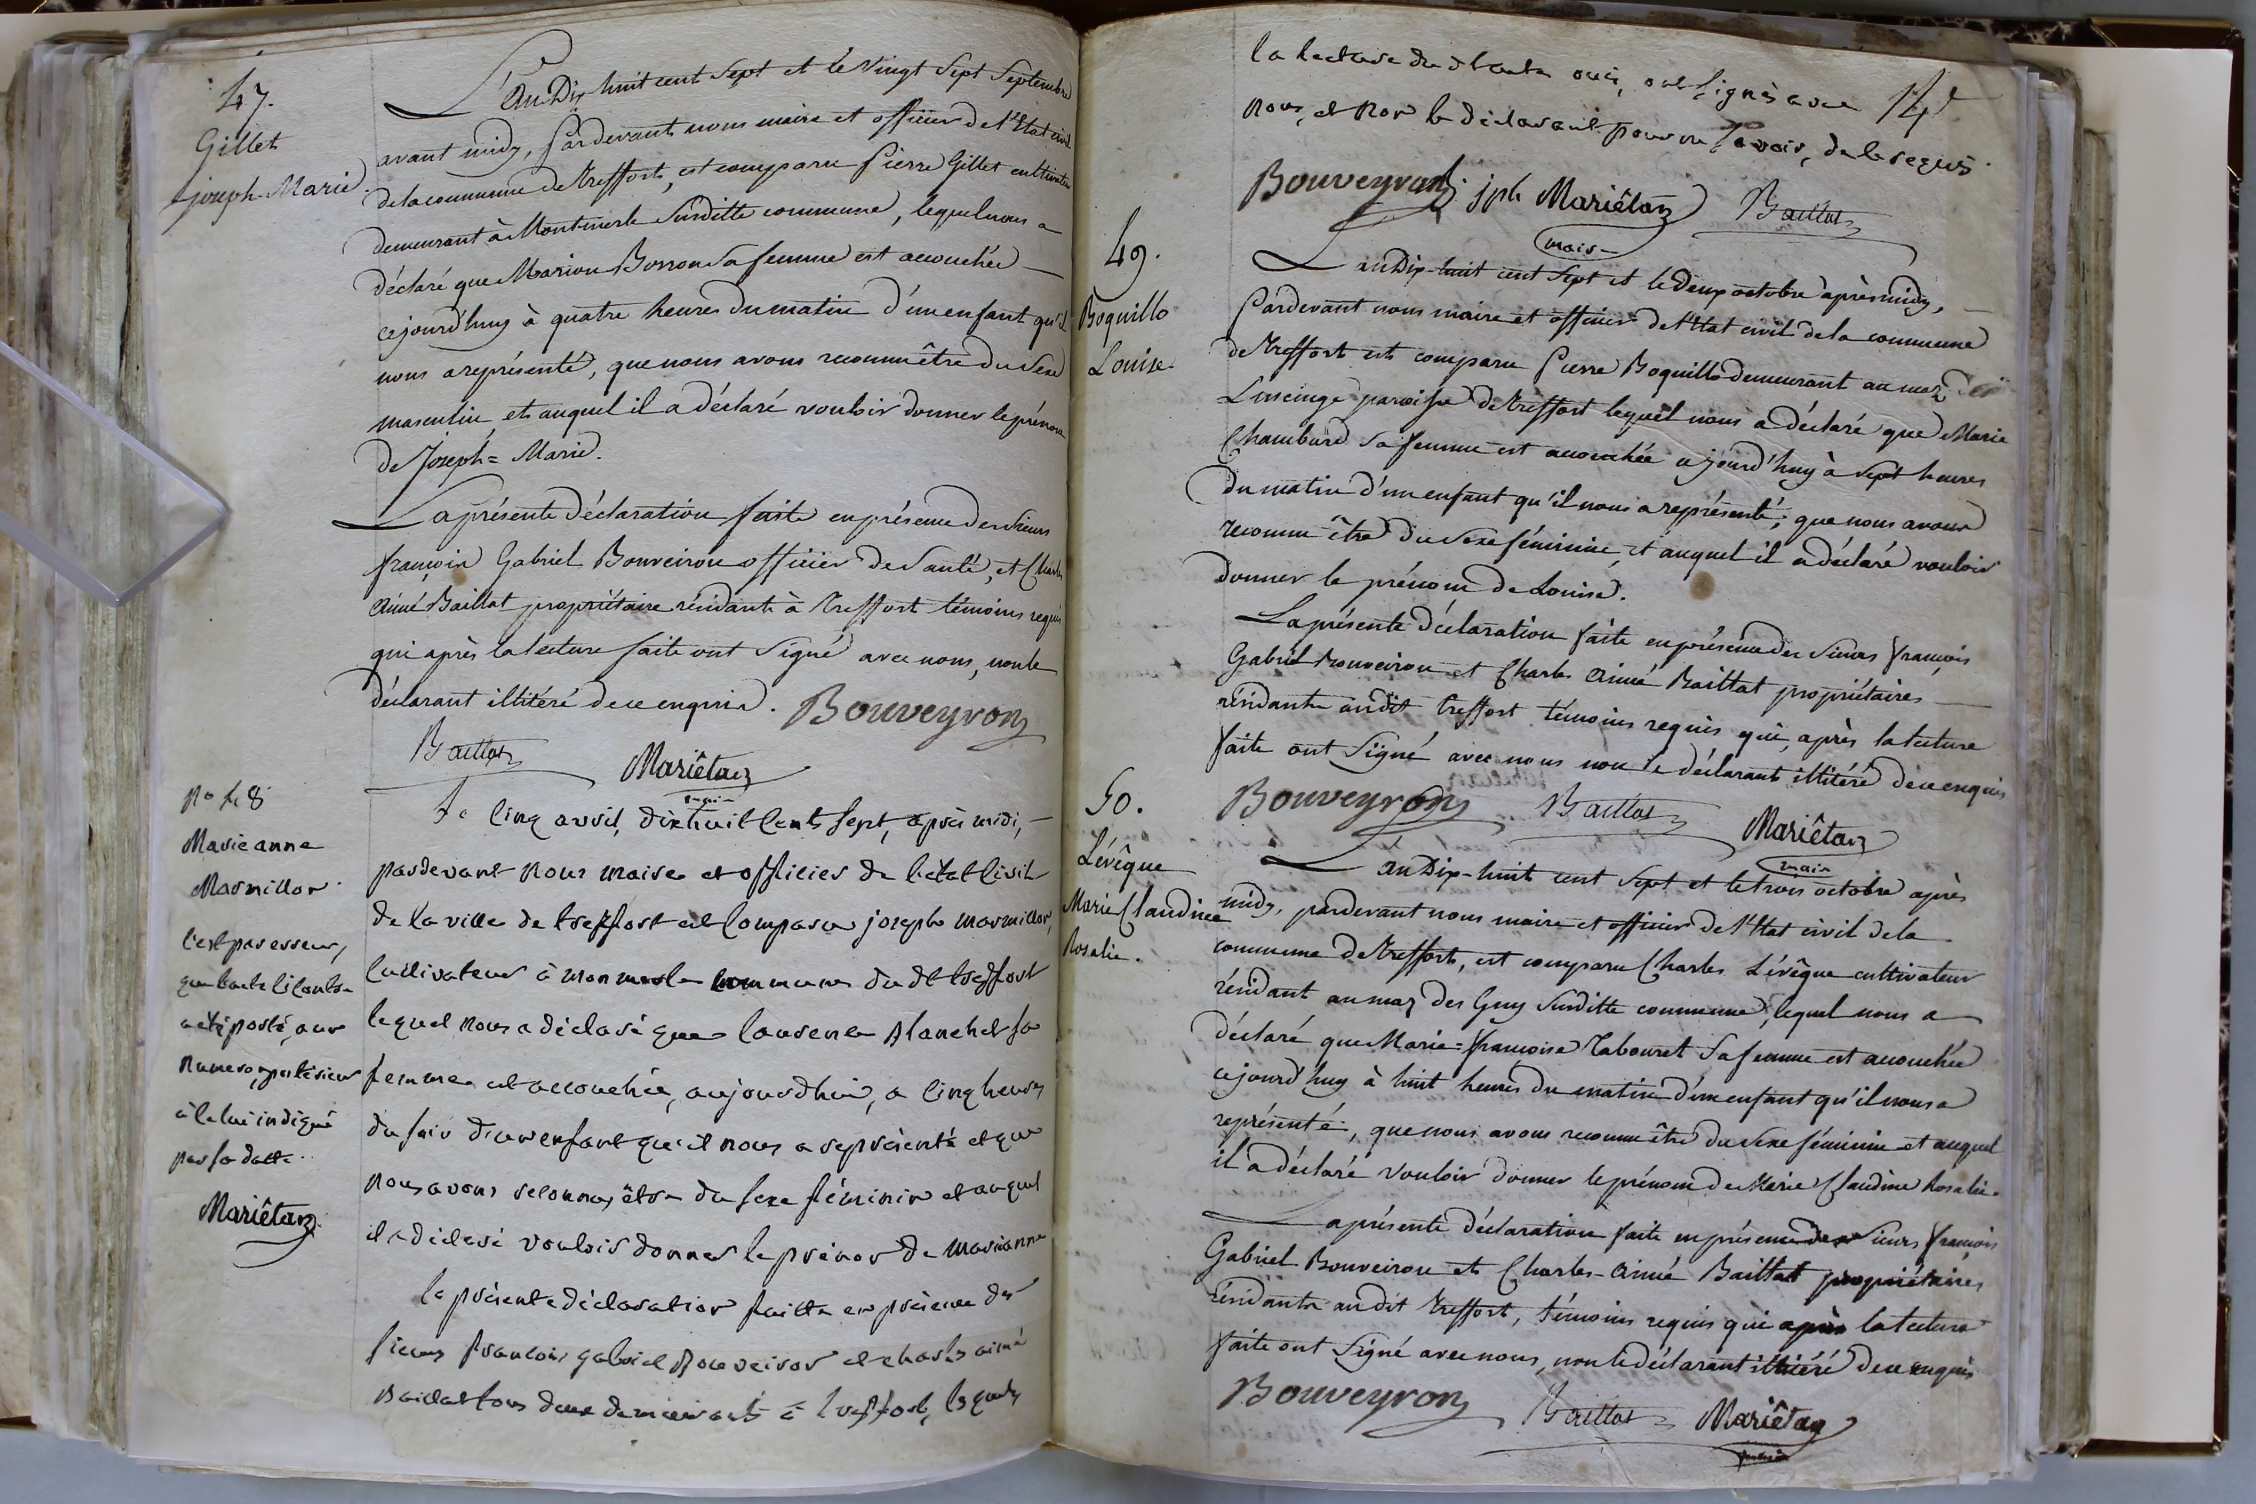 47.
Gillet
joseph-Marie.
L'an Dix huit cent Sept et le vingt Sept Septembre
avant midy, Pardevant nous maire et officier de l'Etat civil
de la commune de Treffort, est comparu Pierre Gillet cultivateur
demeurant à Montmerle Susditte commune, lequel nous a
déclaré que Marion Borron Sa femme est accouchée
cejourd'huy à quatre heures du matin d'un enfant qu'il
nous a représenté, que nous avons reconnu être du Sexe
masculin et auquel il a déclaré vouloir donner le prénom
de Joseph=Marie.
La présente déclaration faite en présence des Sieurs
françois Gabriel Bouveiron officier de Santé, et Charles
Aimé Baillat propriétaire résidants à Treffort témoins requis
qui après la lecture faite ont Signé avec nous, non le
déclarant illitéré de ce enquis.
Bouveyron
Baillat
Mariêtan
maire
no 48
Marie anne
Marmillon
c'est par erreur,
que l'acte ci contre
a été porté, au
numero postérieur
à celui indiqué
par sa datte
Mariêtan
Le cinq avril, dix huit cents sept, après midi,
pardevant nous maire et officier de l'etat civil
de la ville de treffort est comparu joseph marmillon,
cultivateur à monmerle commune du dt treffort
lequel nous a déclaré que laurence Blanchet sa
femme est accouchée, aujourdhui, a cinq heures
du soir d'un enfant qu'il nous a représenté et que
nous avons reconnu, être du sexe féminin et auquel
il a déclaré vouloir donner le prénom de marianne
la présente déclaration faitte en présence des
sieurs françois gabriel Bouveiron et charles aimé
Baillat tous deux demeurants à treffort, lesquels
la lecture du dt acte ouie, ont signés avec
nous, et non le déclarant pour ne savoir, de le requis.
Bouveyron jph Mariêtan Baillat
maire
49.
Boquillo
Louise.
L'an Dix-huit cent Sept et le deux octobre après midy,
Pardevant nous maire et officier de l'Etat civil de la commune
de Treffort est comparu Pierre Boquillo demeurant au maz de
Lucinge paroisse de Treffort lequel nous a déclaré que Marie
Chambard Sa femme est accouchée cejourd'huy à Sept heures
du matin d'un enfant qu'il nous a représenté; que nous avons
reconnu être du Sexe féminin, et auquel il a déclaré vouloir
donner le prénom de Louise.
La présente déclaration faite en présence des Sieurs françois
Gabriel Bouveiron et Charles Aimé Baillat propriétaires
résidants audit Treffort témoins requis qui, après la lecture
faite ont Signé avec nous non le déclarant illitéré de ce enquis
Bouveyron Baillat Mariêtan
maire
50.
Lévêque
Marie Claudine
Rosalie.
L'an Dix-huit cent Sept et le trois octobre après
midy, pardevant nous maire et officier de l'Etat civil de la
commune de Treffort, est comparu Charles Lévêque cultivateur
résidant au maz des Guy Susditte commune, lequel nous a
déclaré que Marie=françoise Tabouret Sa femme est accouchée
cejourd'huy à huit heures du matin d'un enfant qu'il nous a
représenté, que nous avons reconnu être du Sexe féminin et auquel
il a déclaré vouloir donner le prénom de Marie Claudine Rosalie.
La présente déclaration faite en présence des Sieurs françois
Gabriel Bouveiron et Charles-Aimé Baillat propriétaires
résidants audit Treffort, témoins requis qui après la lecture
faite ont Signé avec nous, non le déclarant illitéré de ce enquis
Bouveyron Baillat Mariêtan
maire